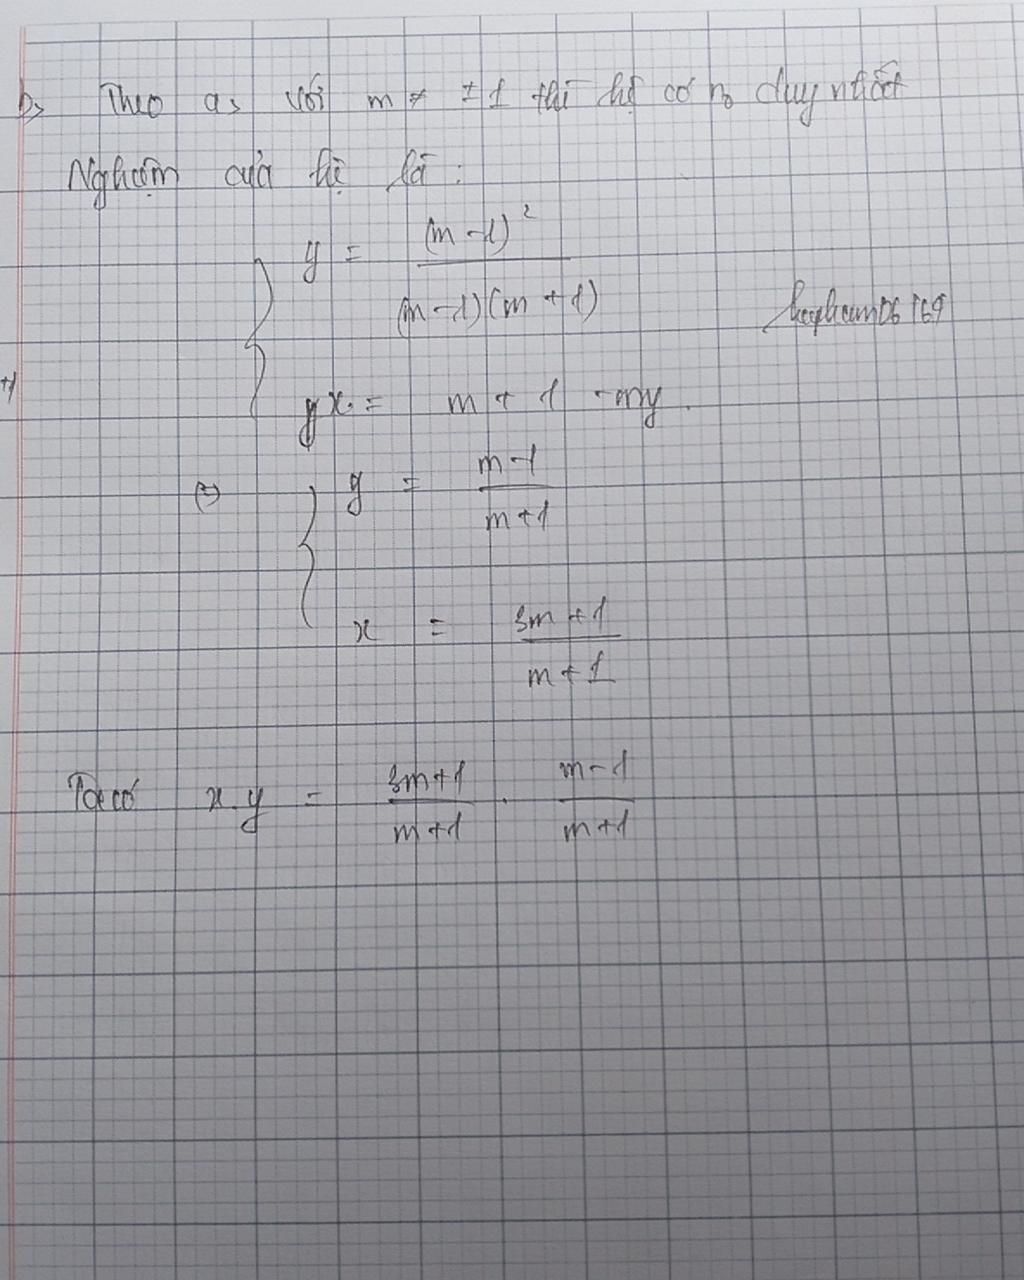 b, Theo a, với m ≠ ±1 thì hệ có no duy nhất
Nghiệm của hệ là :
y = (m-1)² / (m-1)(m+1)
x = m + 1 - my.
(=) y = m-1 / m+1
x = 3m+1 / m+1
Ta có x.y = 3m+1 / m+1 . m-1 / m+1